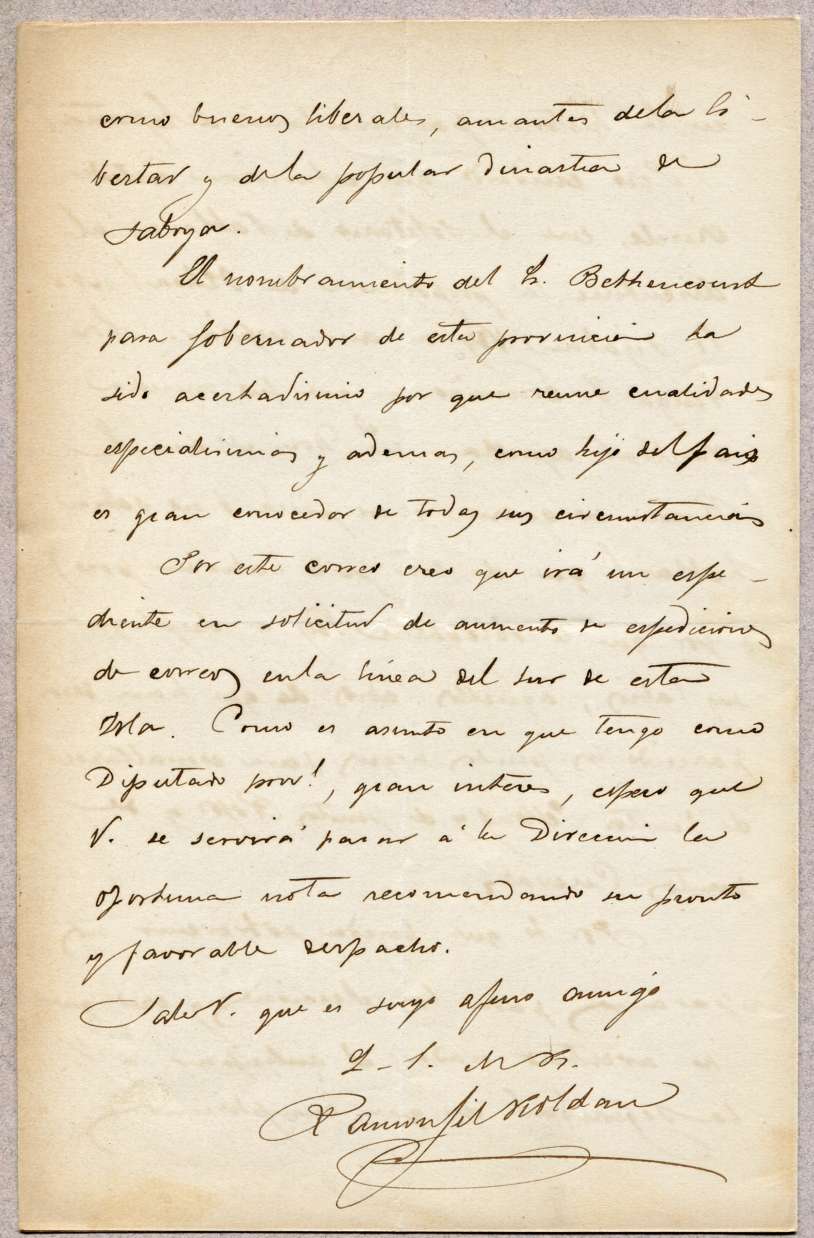 como buenos liberales, amantes de la li-
bertad y de la popular dinastia de
Saboya.
El nombramiento del Sr. Bethencourt
para Gobernador de esta provincia ha
sido acertadisimo por que reune cualidades
especialisimas y ademas, como hijo del pais
es gran conocedor de todas sus circunstancias
Por este correo creo que irá un espe-
diente en solicitud de aumento de espediciones
de correos en la linea del Sur de esta
Isla. Como es asunto en que tengo como
Diputado provl., gran interes, espero que
V. se servirá pasar á la Direccion la
oportuna nota recomendando su pronto
y favorable despacho.
Sabe V. que es suyo afmo amigo
Q. S. M. B.
Ramon Gil Roldan